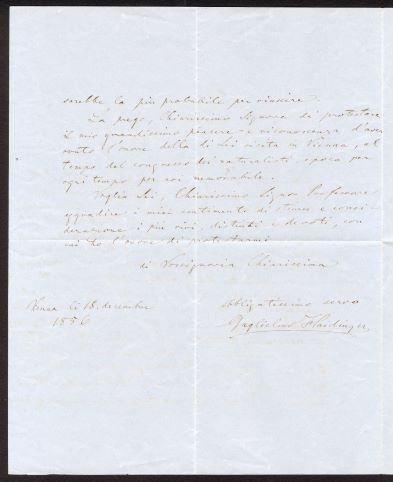 sarebbe la più probabile per riuscire.
La prego, Chiarissimo Signore di protestare
il mio grandissimo piacere e riconoscenza d'aver
avuto l'onore della di Lei visita in Vienna, al
tempo del congresso dei naturalisti, epoca per
ogni tempo per noi memorabile.
Voglia Lei, Chiarissimo Signor Professore
aggradire i miei sentimento di stima e consi-
derazione i più vivi, distinti e devoti, con
cui ho l'onore di protestarmi
di Vossignoria Chiarissima
Vienna li 18 decembre
1856
obbligatissimo servo
Guglielmo Haidinger